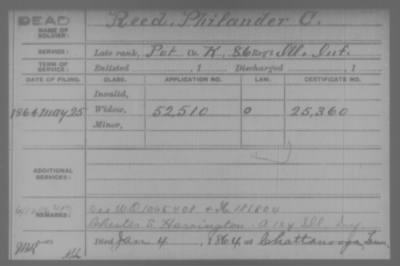 DEAD
NAME OF SOLDIER: Reed, Philander C.
SERVICE: Late rank, Pvt. Co. K, 86 Reg't Ill. Inf.
TERM OF SERVICE: Enlisted , 1 Discharged , 1
DATE OF FILING. CLASS. APPLICATION NO. LAW. CERTIFICATE NO.
Invalid,
1864 May 25 Widow, 52,510 0 25,360
Minor,
ADDITIONAL SERVICES:
REMARKS: See W.O. 1065408
Chester S. Harrington. A 124 Ill. Inf
Died Jan 4, 1864, at Chattanooga, Tenn.